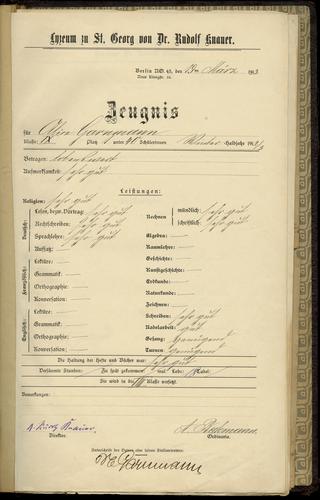 Lyzeum zu St. Georg von Dr. Rudolf Knauer.
Berlin NO. 43, den 13ten März 1913
Neue Königstr.
Zeugnis
für
Klasse: IX Platz unter 40 Schülerinnen Winter-Halbjahr 1912/3
Betragen: lobenswert
Aufmerksamkeit: sehr gut
Leistungen:
Religion: sehr gut
Deutsch:
Lesen, bezw. Vortrag: sehr gut
Rechtschreiben: sehr gut
Sprachlehre: sehr gut
Aufsatz: —
Französisch:
Lektüre: —
Grammatik: —
Orthographie: —
Konversation: —
Englisch:
Lektüre: —
Grammatik: —
Orthographie: —
Konversation: —
Rechnen
mündlich: sehr gut
schriftlich: sehr gut
Algebra: —
Raumlehre: —
Geschichte: —
Kunstgeschichte: —
Erdkunde: —
Naturkunde: —
Zeichnen: —
Schreiben: sehr gut
Nadelarbeit: sehr gut
Gesang: Genügend
Turnen: Genügend
Die Haltung der Hefte und Bücher war: sehr gut
Versäumte Stunden: — Zu spät gekommen: — mal. Lobe: Tadel:
Sie wird in die VIII Klasse versetzt.
Bemerkungen:
Dr. Rudolf Knauer
Direktor.
Ordinaria.
Unterschrift des Vaters oder seines Stellvertreters: